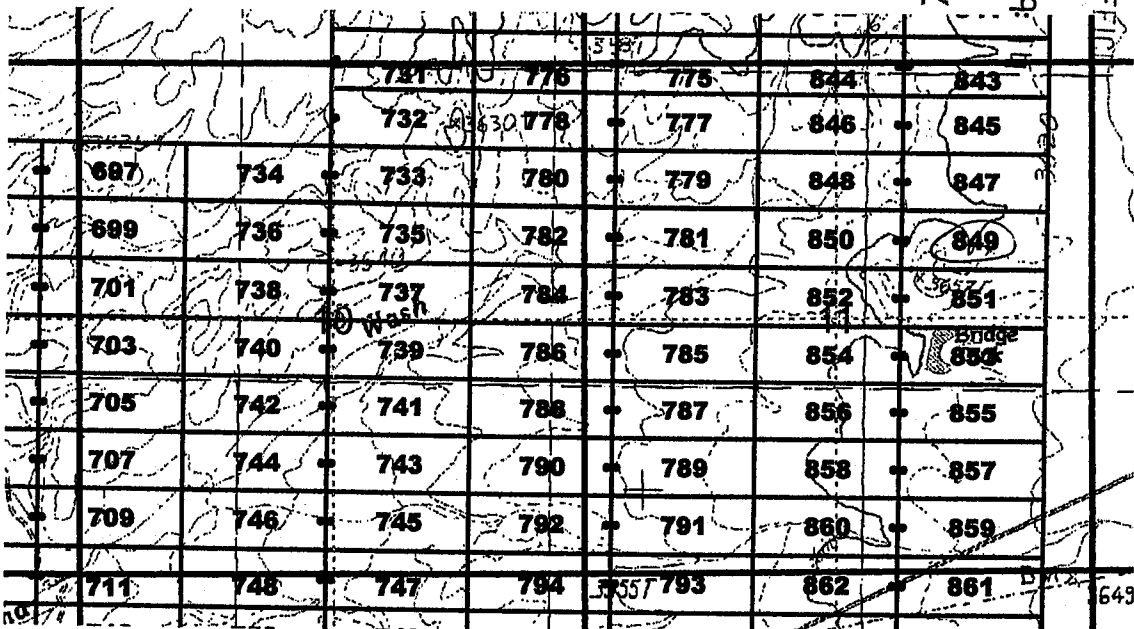 3481
731 776 775 844 843
732 x3630T 778 777 846 845
697 734 733 780 779 848 847
699 736 735 782 781 850 849
701 738 737 784 783 852 851
Wash
11
703 740 739 786 785 854 Bridge
705 742 741 788 787 856 855
707 744 743 790 789 858 857
709 746 745 792 791 860 859
711 748 747 794 3555T 793 862 861
649